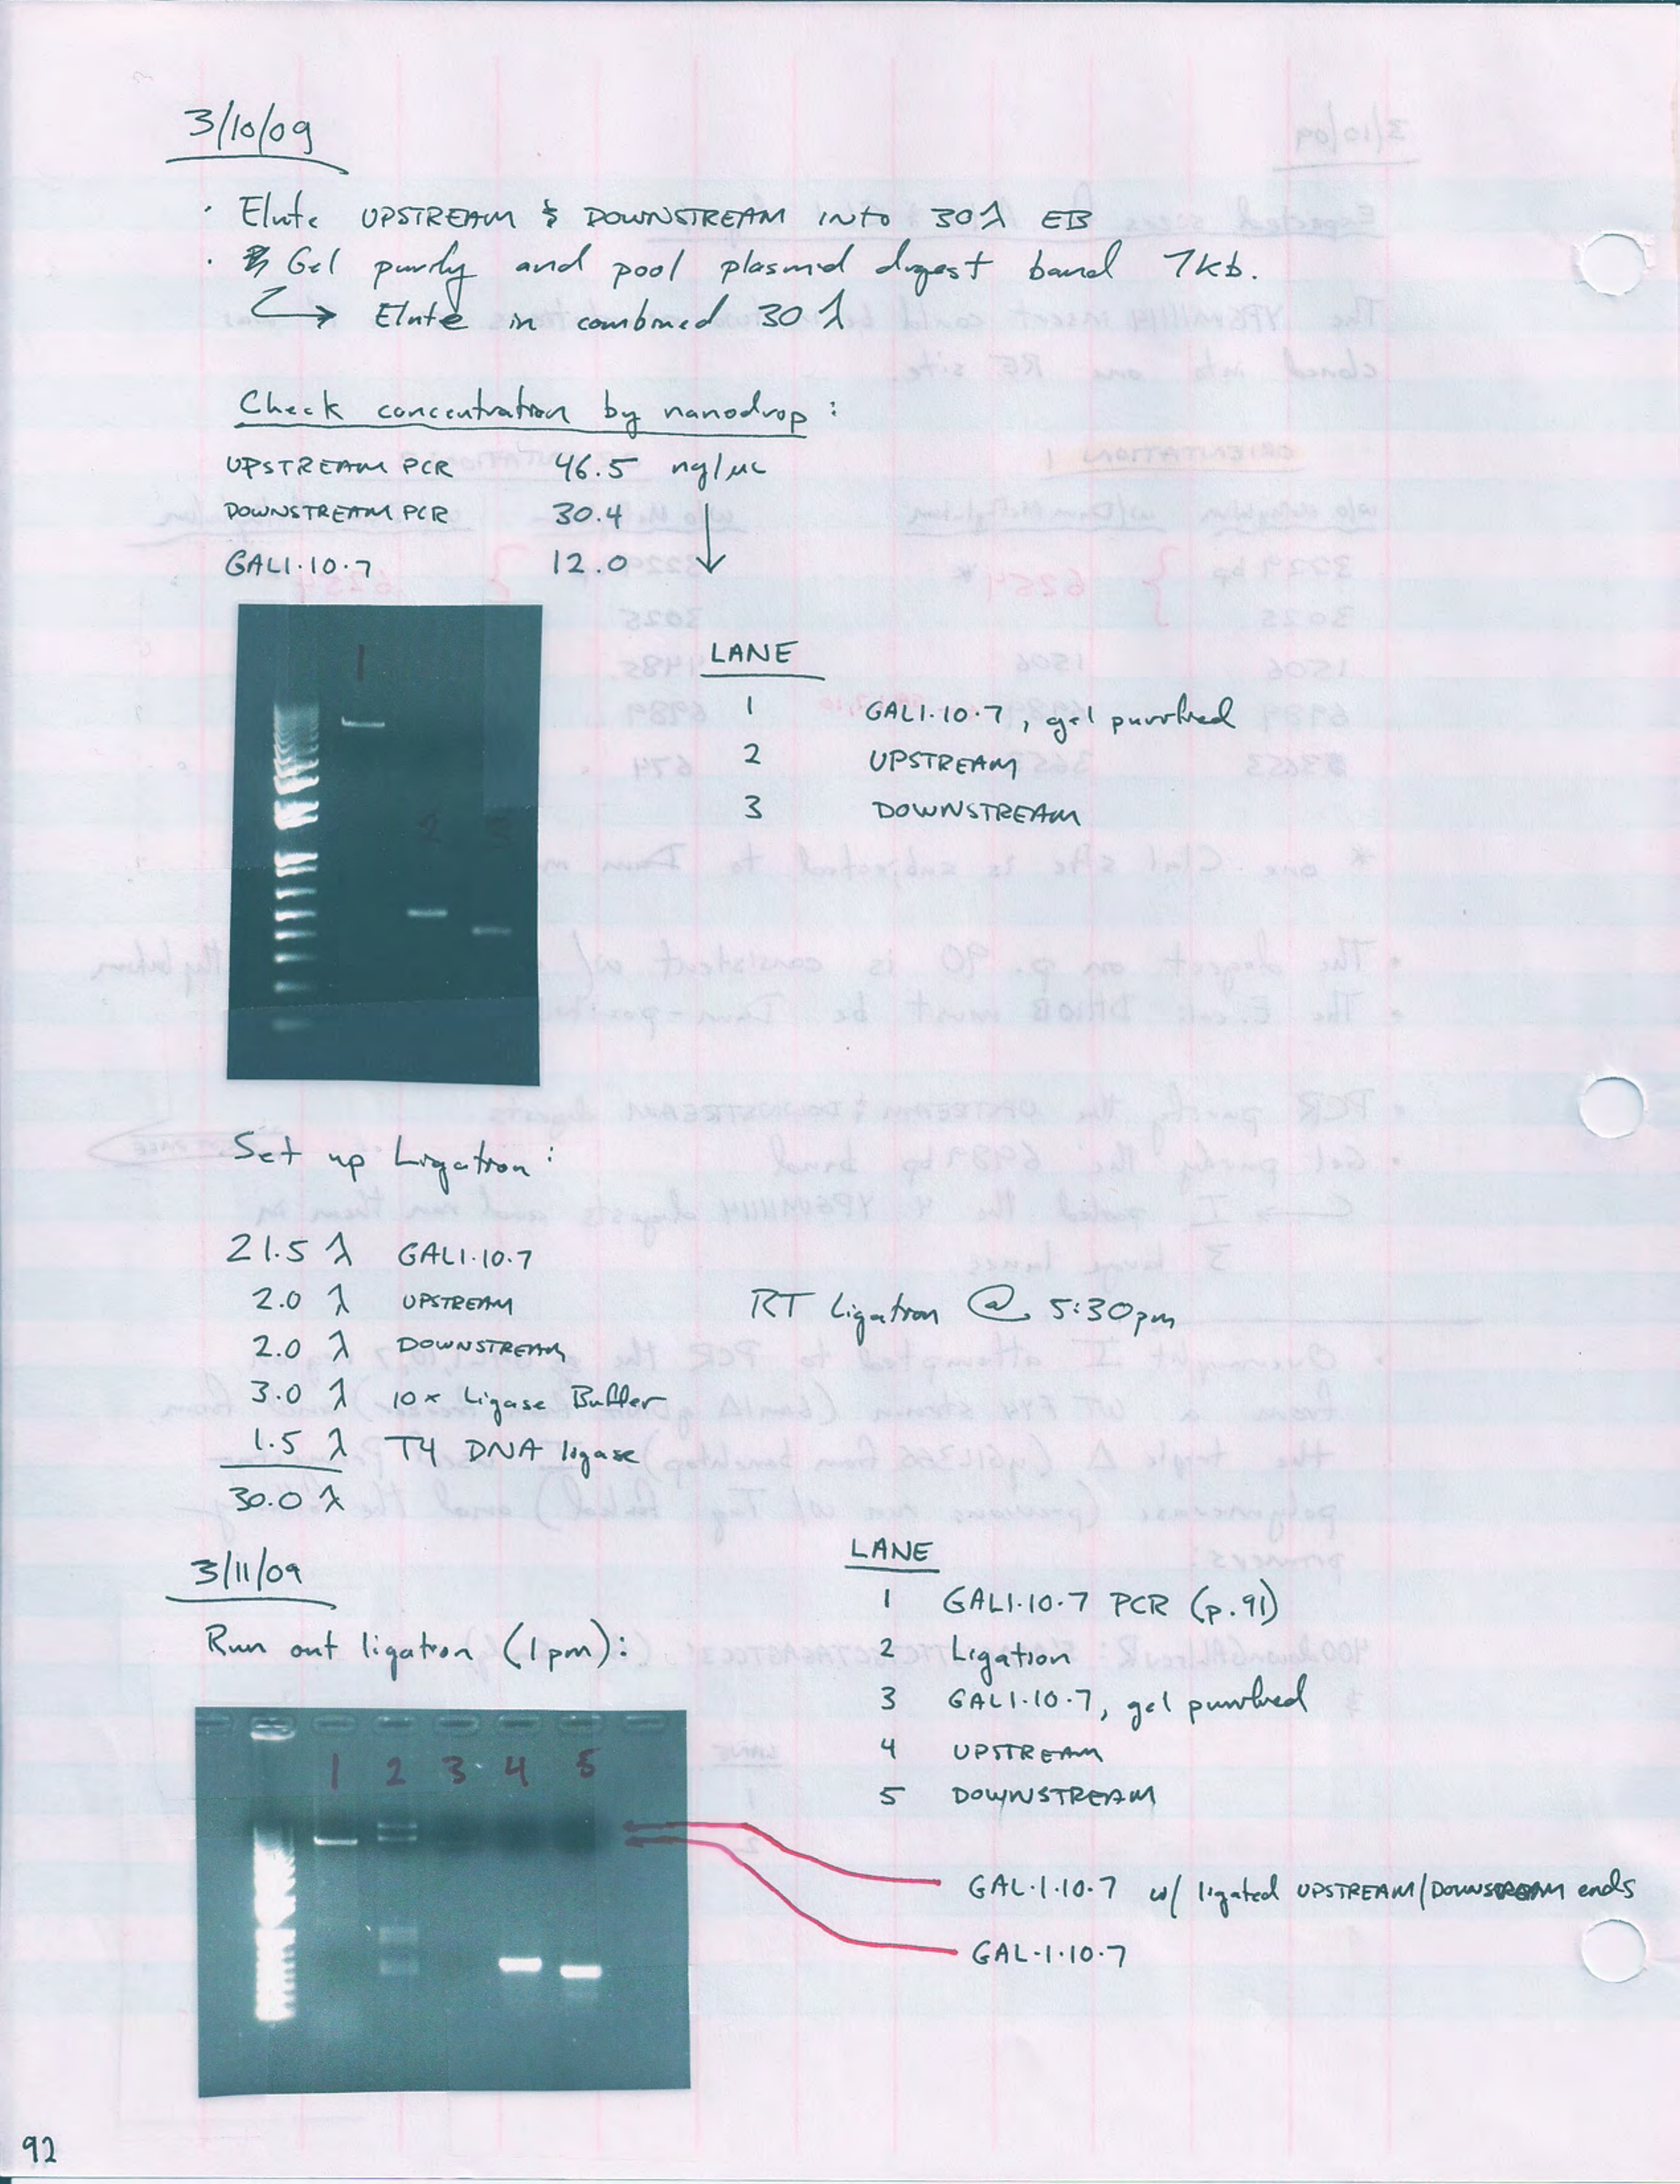 3/10/09
· Elute UPSTREAM & DOWNSTREAM into 30 λ EB
· Gel purify and pool plasmid digest band 7kb.
↳ Elute in combined 30 λ
Check concentration by nanodrop:
UPSTREAM PCR 46.5 ng/µL
DOWNSTREAM PCR 30.4
GAL1·10·7 12.0 ↓
1
2
3
LANE
1 GAL1·10·7, gel purified
2 UPSTREAM
3 DOWNSTREAM
Set up Ligation:
21.5 λ GAL1·10·7
2.0 λ UPSTREAM
2.0 λ DOWNSTREAM
3.0 λ 10x Ligase Buffer
1.5 λ T4 DNA ligase
30.0 λ
RT Ligation @ 5:30pm
3/11/09
Run out ligation (1pm):
LANE
1 GAL1·10·7 PCR (p.91)
2 Ligation
3 GAL1·10·7, gel purified
4 UPSTREAM
5 DOWNSTREAM
1 2 3 4 5
GAL·1·10·7 w/ ligated UPSTREAM/DOWNSTREAM ends
GAL·1·10·7
92